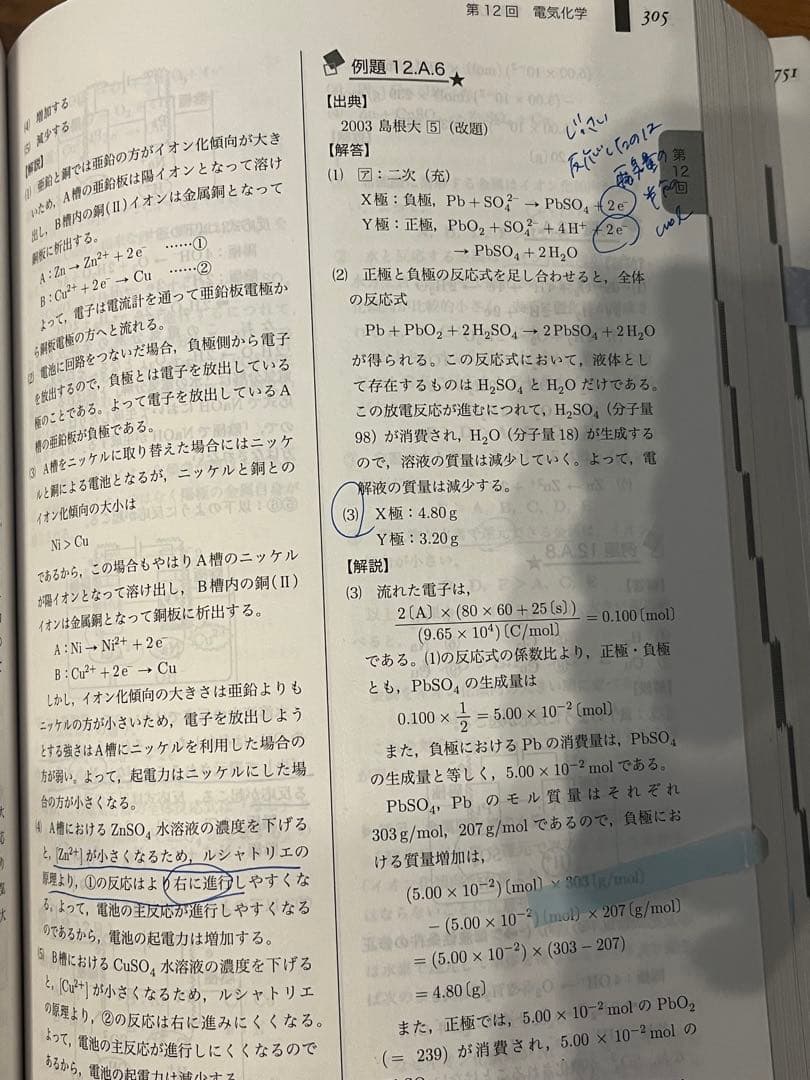 第12回 電気化学 305
751
第12回
(4) 増加する
(5) 減少する
【解説】
(1) 亜鉛と銅では亜鉛の方がイオン化傾向が大き
いため，A槽の亜鉛板は陽イオンとなって溶け
出し，B槽内の銅(II)イオンは金属銅となって
銅板に析出する。
A：Zn → Zn²⁺ + 2e⁻ ……①
B：Cu²⁺ + 2e⁻ → Cu ……②
よって，電子は電流計を通って亜鉛板電極か
ら銅板電極の方へと流れる。
(2) 電池に回路をつないだ場合，負極側から電子
を放出するので，負極とは電子を放出している
極のことである。よって電子を放出しているA
槽の亜鉛板が負極である。
(3) A槽をニッケルに取り替えた場合にはニッケ
ルと銅による電池となるが，ニッケルと銅との
イオン化傾向の大小は
Ni > Cu
であるから，この場合もやはりA槽のニッケル
が陽イオンとなって溶け出し，B槽内の銅(II)
イオンは金属銅となって銅板に析出する。
A：Ni → Ni²⁺ + 2e⁻
B：Cu²⁺ + 2e⁻ → Cu
しかし，イオン化傾向の大きさは亜鉛よりも
ニッケルの方が小さいため，電子を放出しよう
とする強さはA槽にニッケルを利用した場合の
方が弱い。よって，起電力はニッケルにした場
合の方が小さくなる。
(4) A槽におけるZnSO₄水溶液の濃度を下げる
と，[Zn²⁺]が小さくなるため，ルシャトリエの
原理より，①の反応はより右に進行しやすくな
る。よって，電池の主反応が進行しやすくなる
のであるから，電池の起電力は増加する。
(5) B槽におけるCuSO₄水溶液の濃度を下げる
と，[Cu²⁺]が小さくなるため，ルシャトリエ
の原理より，②の反応は右に進みにくくなる。
よって，電池の主反応が進行しにくくなるので
あるから，電池の起電力は減少する。
例題 12.A.6 ★
【出典】
2003 島根大 5 (改題)
【解答】
(1) ア：二次（充）
X極：負極，Pb + SO₄²⁻ → PbSO₄ + 2e⁻
Y極：正極，PbO₂ + SO₄²⁻ + 4H⁺ + 2e⁻
→ PbSO₄ + 2H₂O
(2) 正極と負極の反応式を足し合わせると，全体
の反応式
Pb + PbO₂ + 2H₂SO₄ → 2PbSO₄ + 2H₂O
が得られる。この反応式において，液体とし
て存在するものはH₂SO₄とH₂Oだけである。
この放電反応が進むにつれて，H₂SO₄（分子量
98）が消費され，H₂O（分子量18）が生成する
ので，溶液の質量は減少していく。よって，電
解液の質量は減少する。
(3) X極：4.80g
Y極：3.20g
【解説】
(3) 流れた電子は，
2〔A〕×(80×60+25〔s〕)/(9.65×10⁴)〔C/mol〕 = 0.100〔mol〕
である。(1)の反応式の係数比より，正極・負極
とも，PbSO₄の生成量は
0.100 × 1/2 = 5.00 × 10⁻²〔mol〕
また，負極におけるPbの消費量は，PbSO₄
の生成量と等しく，5.00 × 10⁻² molである。
PbSO₄，Pbのモル質量はそれぞれ
303g/mol，207g/molであるので，負極にお
ける質量増加は，
(5.00 × 10⁻²)〔mol〕× 303〔g/mol〕
− (5.00 × 10⁻²)〔mol〕× 207〔g/mol〕
= (5.00 × 10⁻²) × (303 − 207)
= 4.80〔g〕
また，正極では，5.00 × 10⁻² molのPbO₂
(= 239) が消費され，5.00 × 10⁻² molの